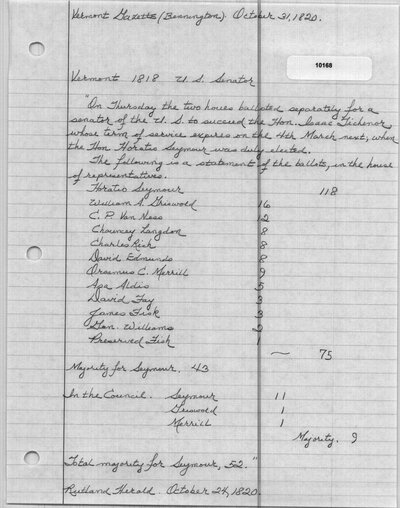 Vermont Gazette (Bennington). October 31, 1820.
10168
Vermont 1818 U.S. Senator
"On Thursday the two houses balloted separately for a
senator of the U.S. to succeed the Hon. Isaac Tichenor,
whose term of service expires on the 4th March next, when
the Hon. Horatio Seymour was duly elected.
The following is a statement of the ballots, in the house
of representatives.
Horatio Seymour 118
William A. Griswold 16
C. P. Van Ness 12
Chauncey Langdon 8
Charles Rich 8
David Edmunds 8
Orasmus C. Merrill 9
Asa Aldis 5
David Fay 3
James Fisk 3
Gen. Williams 2
Preserved Fish 1
~ 75
Majority for Seymour, 43
In the Council. Seymour 11
Griswold 1
Merrill 1
Majority. 9
Total majority for Seymour, 52."
Rutland Herald. October 24, 1820.